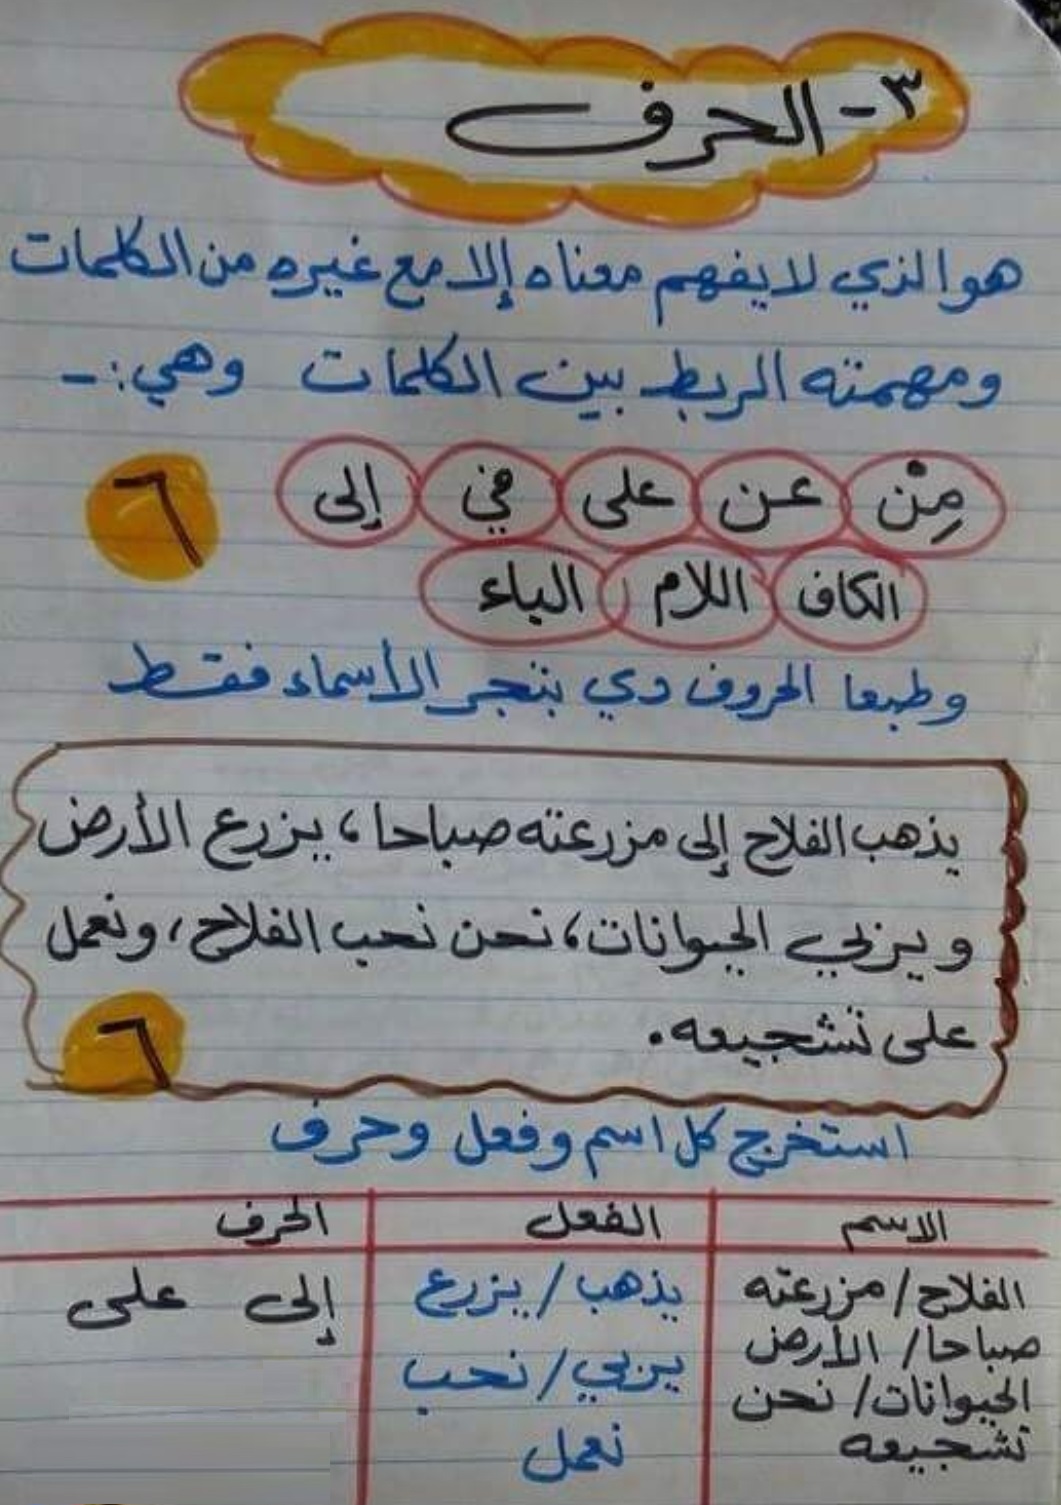 ٣- الحرف
هو الذي لا يفهم معناه إلا مع غيره من الكلمات
ومهمته الربط بين الكلمات وهي:-
مِنْ عن على في إلى
٦
الكاف اللام الباء
وطبعا الحروف دي بتجر الأسماء فقط
يذهب الفلاح إلى مزرعته صباحا، يزرع الأرض
ويربي الحيوانات، نحن نحب الفلاح، ونعمل
على تشجيعه.
٦
استخرج كل اسم وفعل وحرف
الاسم الفعل الحرف
الفلاح/مزرعته يذهب/يزرع إلى على
صباحا/الأرض
يربي/نحب
الحيوانات/نحن
تشجيعه نعمل